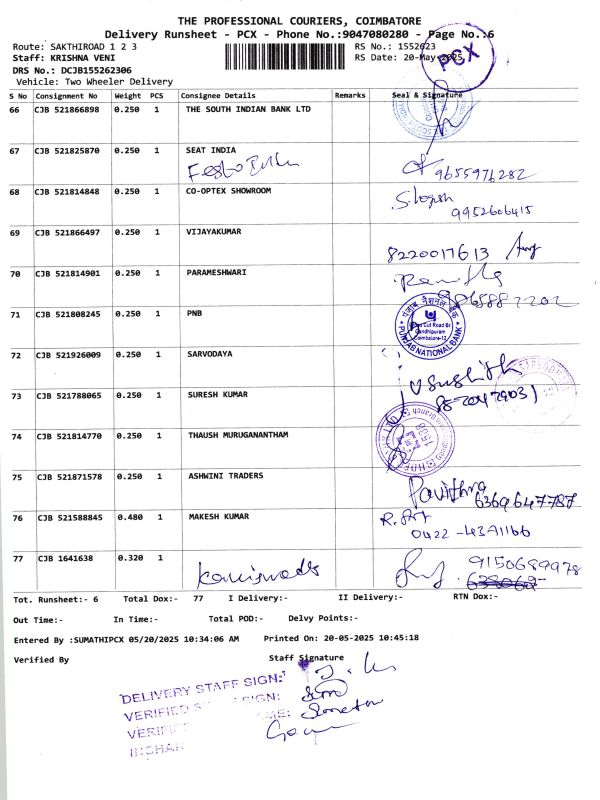 THE PROFESSIONAL COURIERS, COIMBATORE
Delivery Runsheet - PCX - Phone No.:9047080280 - Page No.:6
Route: SAKTHIROAD 1 2 3
RS No.: 1552623
Staff: KRISHNA VENI
RS Date: 20-May-2025
PCX
DRS No.: DCJB155262306
Vehicle: Two Wheeler Delivery
S No Consignment No Weight PCS Consignee Details Remarks Seal & Signature
66 CJB 521866898 0.250 1 THE SOUTH INDIAN BANK LTD
67 CJB 521825870 0.250 1 SEAT INDIA
9655976282
68 CJB 521814848 0.250 1 CO-OPTEX SHOWROOM
9952606415
69 CJB 521866497 0.250 1 VIJAYAKUMAR
8220017613
70 CJB 521814901 0.250 1 PARAMESHWARI
71 CJB 521808245 0.250 1 PNB
पंजाब नैशनल बैंक
Gandhipuram
Coimbatore-12
PUNJAB NATIONAL BANK
72 CJB 521926009 0.250 1 SARVODAYA
73 CJB 521788065 0.250 1 SURESH KUMAR
74 CJB 521814770 0.250 1 THAUSH MURUGANANTHAM
75 CJB 521871578 0.250 1 ASHWINI TRADERS
Pavithra
6369647787
76 CJB 521588845 0.480 1 MAKESH KUMAR
0422 - 4391166
77 CJB 1641638 0.320 1
9150689978
Tot. Runsheet:- 6 Total Dox:- 77 I Delivery:- II Delivery:- RTN Dox:-
Out Time:- In Time:- Total POD:- Delvy Points:-
Entered By :SUMATHIPCX 05/20/2025 10:34:06 AM Printed On: 20-05-2025 10:45:18
Verified By Staff Signature
DELIVERY STAFF SIGN: